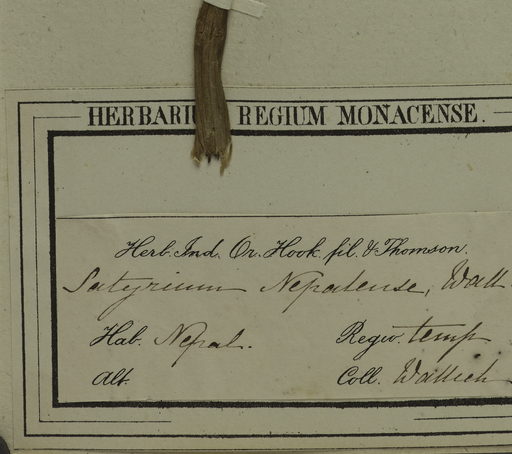 HERBARIUM REGIUM MONACENSE.
Herb. Ind. Or. Hook. fil. & Thomson.
Satyrium Nepalense, Wall
Hab. Nepal. Regio. temp
Alt. Coll. Wallich